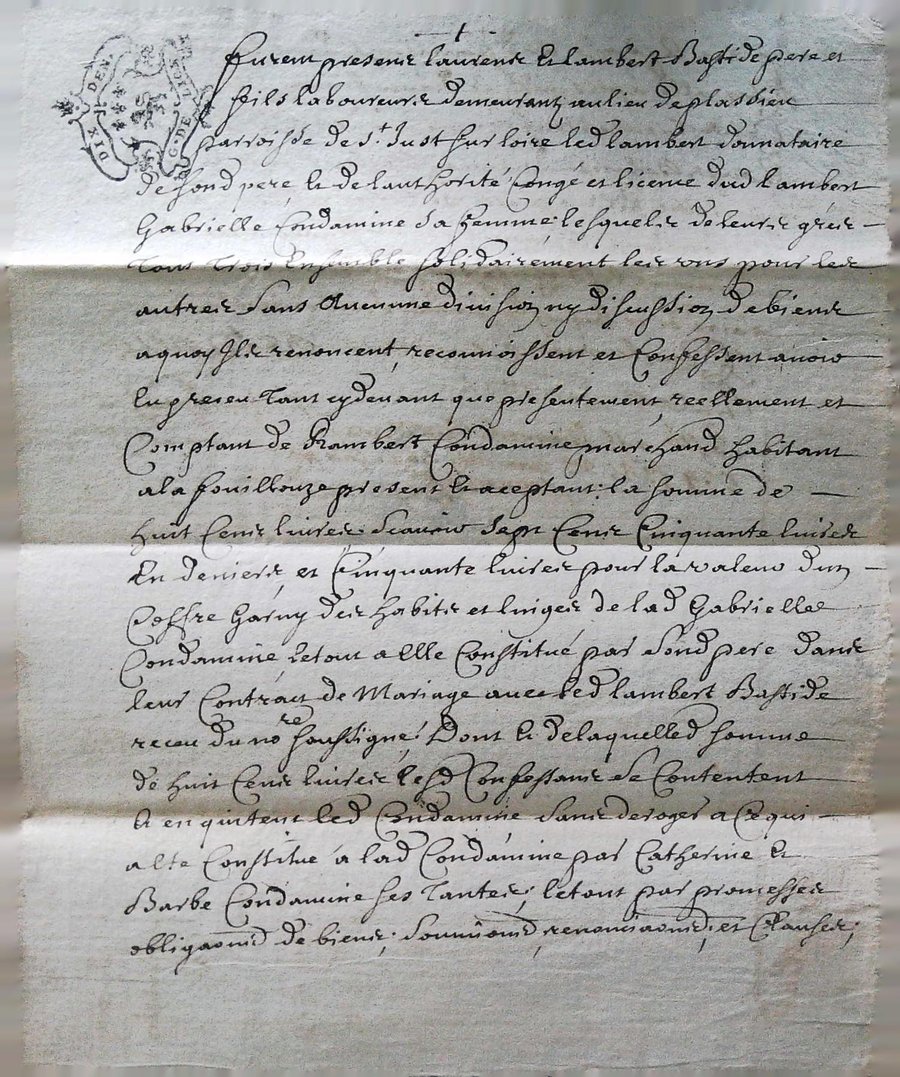 DIX DEN. G. DE
Furent presents laurens et lambert Bastide pere et
fils laboureurs demeurantz au lieu de plassieu
parroisse de st. Just sur loire led lambert donnataire
de sond pere et de lauthorité Congé et licence dud lambert
Gabriélle Condamine sa femme, lesquels de leurs grés
Tous Trois Ensemble solidairement les uns pour les
autres sans Aucunne division ny discussion de biens
a quoy Ils renoncent, reconnoissent et Confessent avoir
Eu presen Tant cy devant que presentement, reellement et
Comptant de Rambert Condamine marchand habitant
a la fouillouze present et aceptant la somme de
huit Cens livres Scavoir sept Cens Cinquante livres
En deniers, et Cinquante livres pour la valeur dun
Coffre Garny des habits et linges de lad Gabrielle
Condamine, le tout a Elle Constitué par sond pere dans
leur Contract de Mariage avec led lambert Bastide
receu du nore soussigné, Dont et de laquelled somme
de huit Cens livres lesd Confessans se Contentent
et en quittent led Condamine sans deroger a Ce qui
a esté Constitué a lad Condamine par Catherine et
Barbe Condamine ses Tantes; le tout par promesses
obligaoned de biens, soumiones, renonciaones, et Clauses;